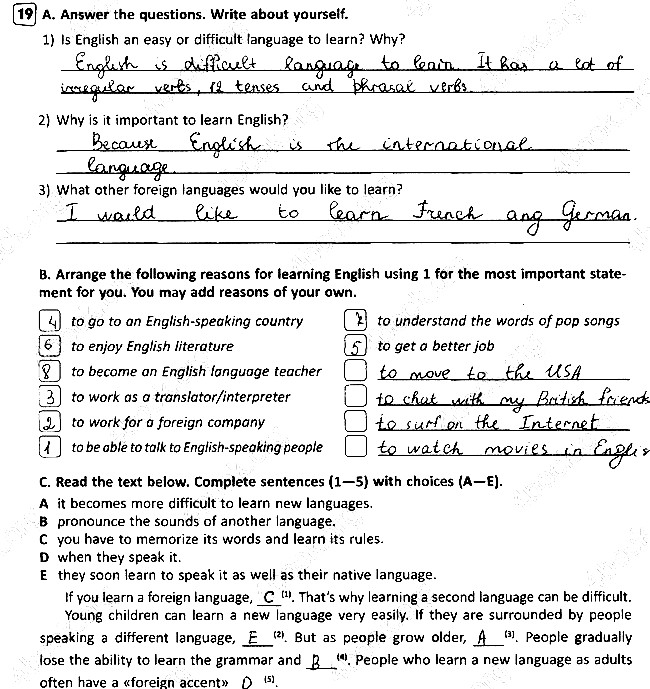 19 A. Answer the questions. Write about yourself.
1) Is English an easy or difficult language to learn? Why?
English is difficult language to learn. It has a lot of
irregular verbs, 12 tenses and phrasal verbs.
2) Why is it important to learn English?
Because English is the international
language.
3) What other foreign languages would you like to learn?
I would like to learn French ang German.
B. Arrange the following reasons for learning English using 1 for the most important state-
ment for you. You may add reasons of your own.
4 to go to an English-speaking country
6 to enjoy English literature
8 to become an English language teacher
3 to work as a translator/interpreter
2 to work for a foreign company
1 to be able to talk to English-speaking people
7 to understand the words of pop songs
5 to get a better job
to move to the USA
to chat with my British friends
to surf on the Internet
to watch movies in Englis
C. Read the text below. Complete sentences (1—5) with choices (A—E).
A it becomes more difficult to learn new languages.
B pronounce the sounds of another language.
C you have to memorize its words and learn its rules.
D when they speak it.
E they soon learn to speak it as well as their native language.
If you learn a foreign language, C (1). That's why learning a second language can be difficult.
Young children can learn a new language very easily. If they are surrounded by people
speaking a different language, E (2). But as people grow older, A (3). People gradually
lose the ability to learn the grammar and B (4). People who learn a new language as adults
often have a «foreign accent» D (5).